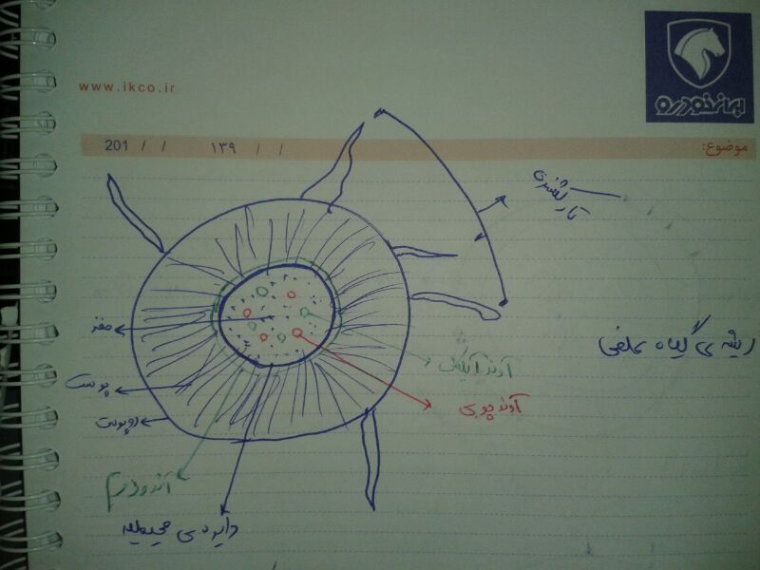 ایران‌خودرو
www.ikco.ir
موضوع:
201 / / ۱۳۹ / /
تار کشنده
ریشه ی گیاه علفی
مغز
آوند آبکش
پوست
آوند چوبی
روپوست
آندودرم
دایره ی محیطیه